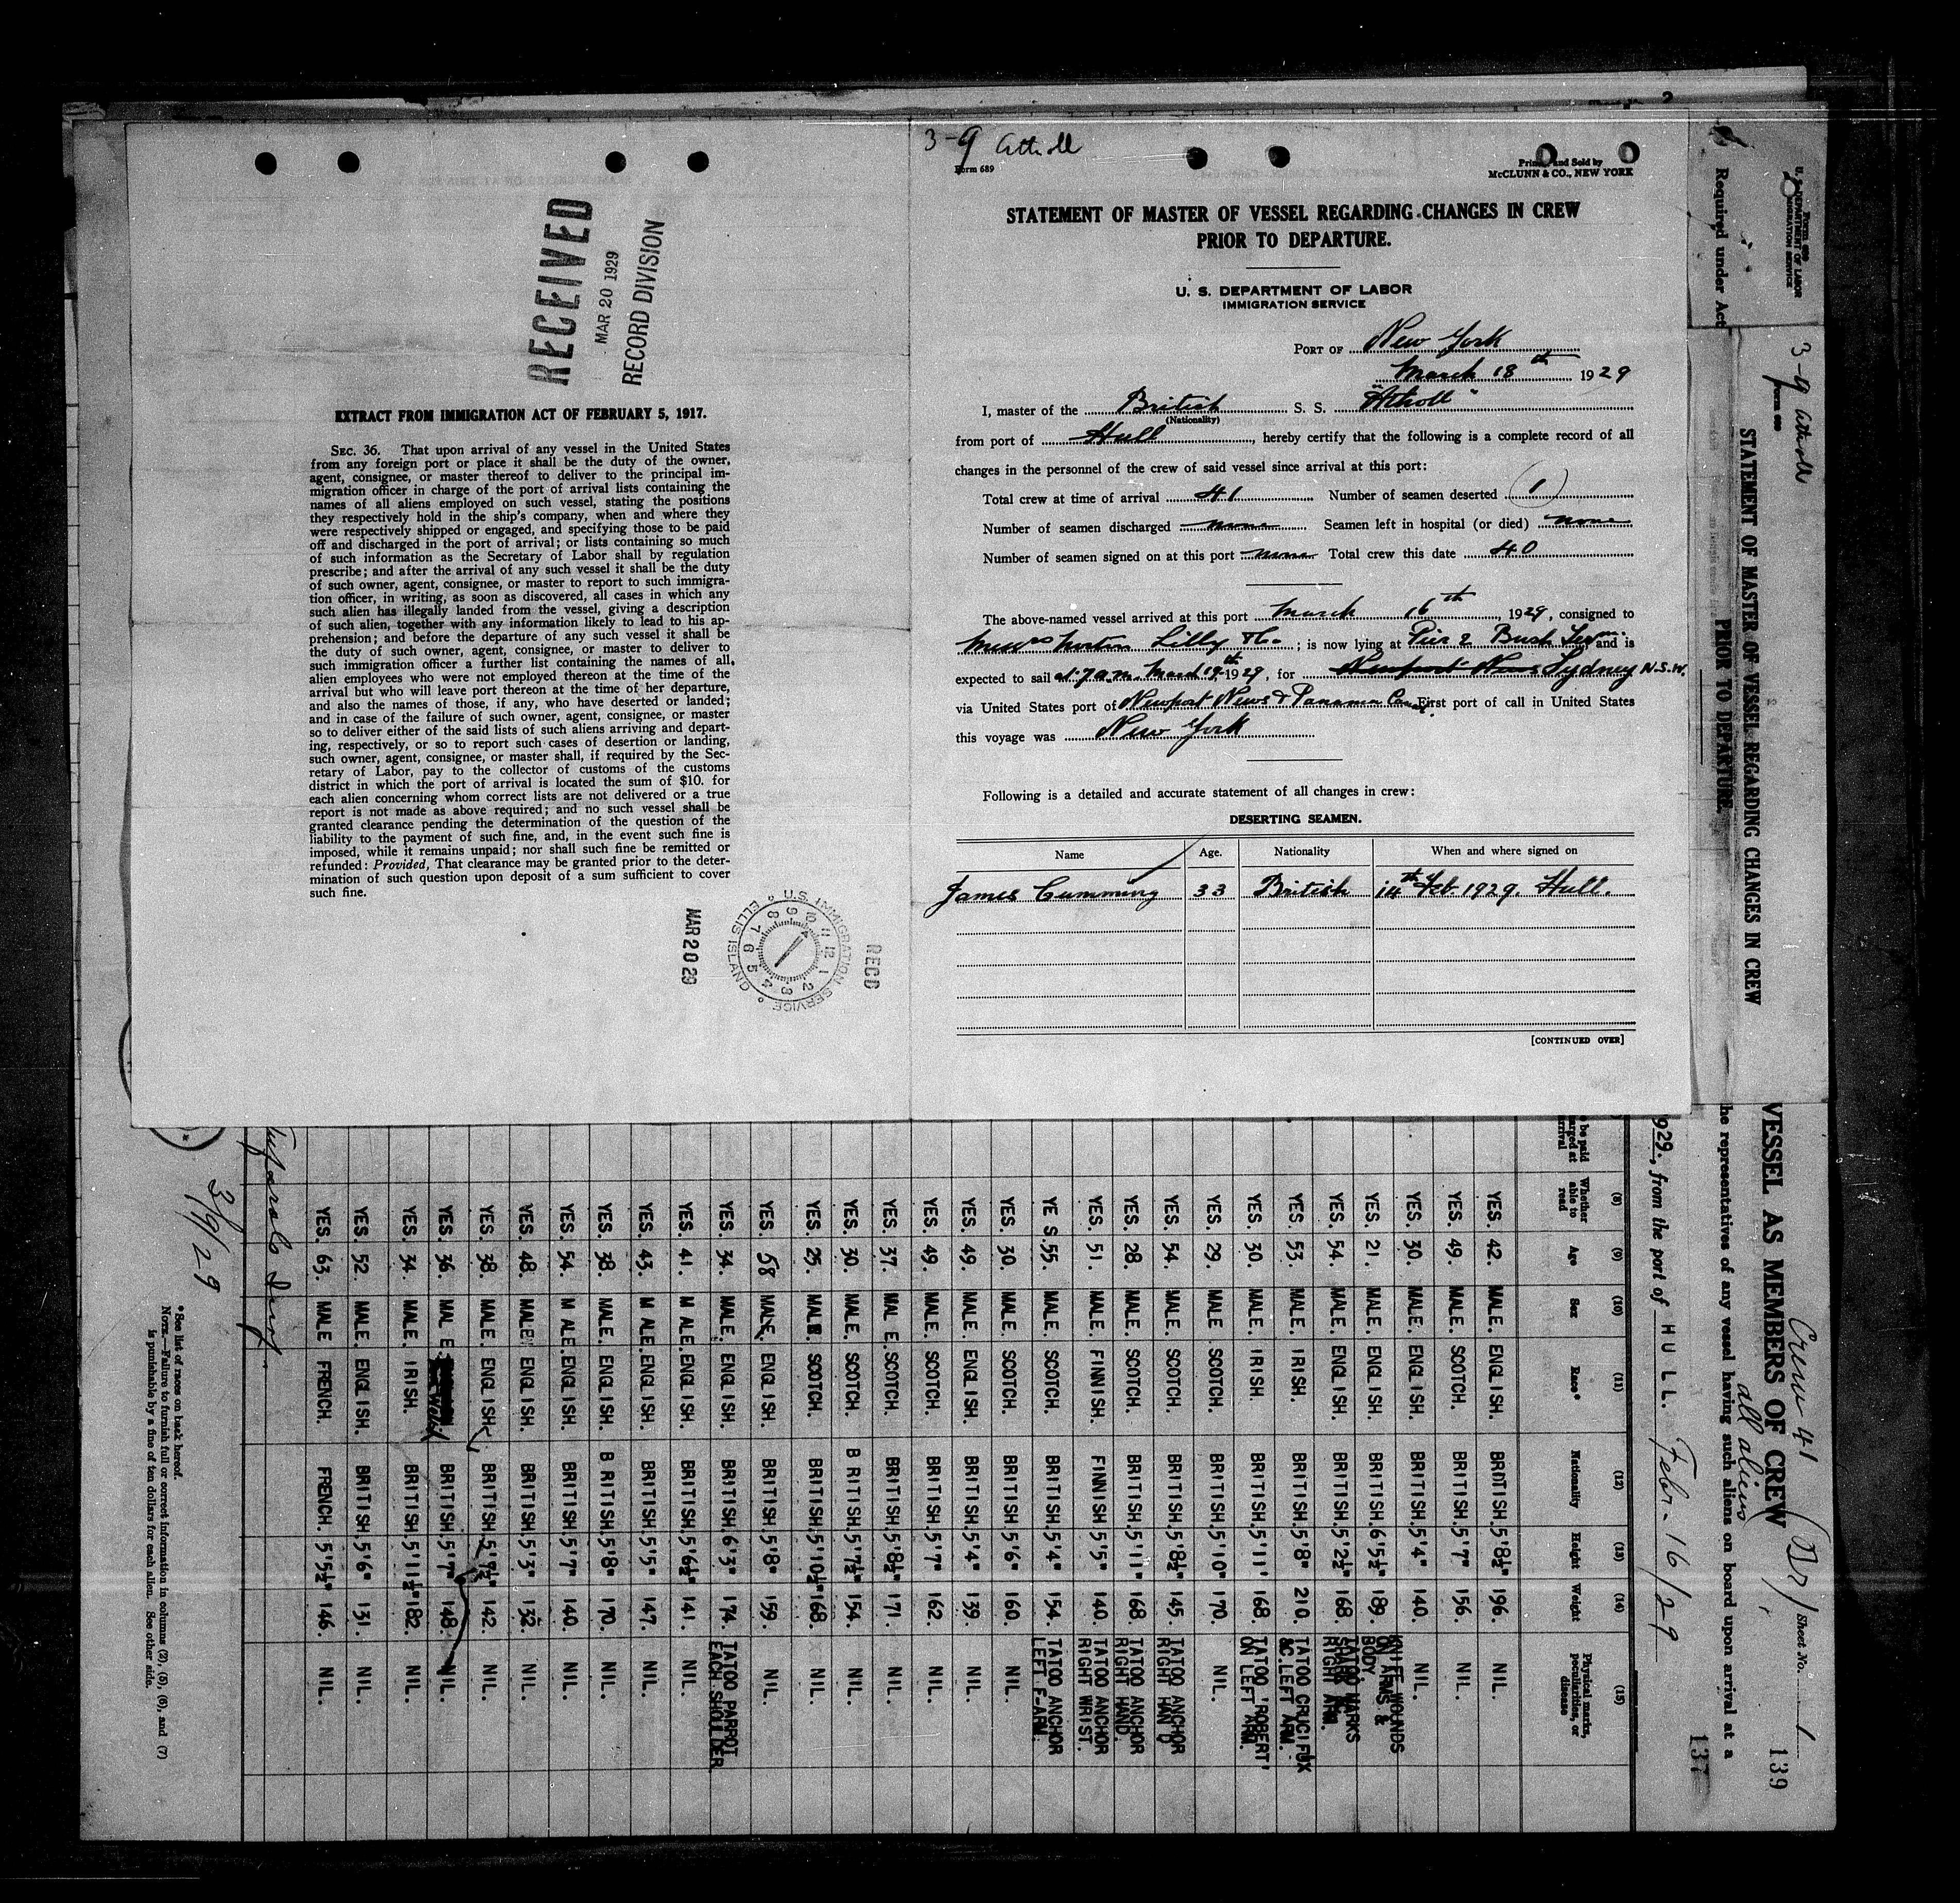 RECEIVED
MAR 20 1929
RECORD DIVISION
EXTRACT FROM IMMIGRATION ACT OF FEBRUARY 5, 1917.
SEC. 36. That upon arrival of any vessel in the United States
from any foreign port or place it shall be the duty of the owner,
agent, consignee, or master thereof to deliver to the principal im-
migration officer in charge of the port of arrival lists containing the
names of all aliens employed on such vessel, stating the positions
they respectively hold in the ship's company, when and where they
were respectively shipped or engaged, and specifying those to be paid
off and discharged in the port of arrival; or lists containing so much
of such information as the Secretary of Labor shall by regulation
prescribe; and after the arrival of any such vessel it shall be the duty
of such owner, agent, consignee, or master to report to such immigra-
tion officer, in writing, as soon as discovered, all cases in which any
such alien has illegally landed from the vessel, giving a description
of such alien, together with any information likely to lead to his ap-
prehension; and before the departure of any such vessel it shall be
the duty of such owner, agent, consignee, or master to deliver to
such immigration officer a further list containing the names of all
alien employees who were not employed thereon at the time of the
arrival but who will leave port thereon at the time of her departure,
and also the names of those, if any, who have deserted or landed;
and in case of the failure of such owner, agent, consignee, or master
so to deliver either of the said lists of such aliens arriving and depart-
ing, respectively, or so to report such cases of desertion or landing,
such owner, agent, consignee, or master shall, if required by the Sec-
retary of Labor, pay to the collector of customs of the customs
district in which the port of arrival is located the sum of $10. for
each alien concerning whom correct lists are not delivered or a true
report is not made as above required; and no such vessel shall be
granted clearance pending the determination of the question of the
liability to the payment of such fine, and, in the event such fine is
imposed, while it remains unpaid; nor shall such fine be remitted or
refunded: Provided, That clearance may be granted prior to the deter-
mination of such question upon deposit of a sum sufficient to cover
such fine.
MAR 20 29
U.S. IMMIGRATION SERVICE
ELLIS ISLAND
RECD
3-9 Atholl
Form 689
Printed and Sold by
McCLUNN & CO., NEW YORK
STATEMENT OF MASTER OF VESSEL REGARDING CHANGES IN CREW
PRIOR TO DEPARTURE.
U. S. DEPARTMENT OF LABOR
IMMIGRATION SERVICE
PORT OF New York
March 18th 1929
I, master of the British S. S. "Atholl"
(Nationality)
from port of Hull, hereby certify that the following is a complete record of all
changes in the personnel of the crew of said vessel since arrival at this port:
Total crew at time of arrival 41 Number of seamen deserted 1
Number of seamen discharged none Seamen left in hospital (or died) none
Number of seamen signed on at this port none Total crew this date 40
The above-named vessel arrived at this port March 16th, 1929, consigned to
Messrs Norton Lilly & Co.; is now lying at Pier 2 Bush Term. and is
expected to sail at 7 a.m. March 19th 1929, for Newport News Sydney N.S.W.
via United States port of Newport News & Panama Canal. First port of call in United States
this voyage was New York
Following is a detailed and accurate statement of all changes in crew:
DESERTING SEAMEN.
Name Age. Nationality When and where signed on
James Cumming 33 British 14th Feb. 1929. Hull.
[CONTINUED OVER]
U. S. DEPARTMENT OF LABOR
IMMIGRATION SERVICE
Required under Act
3-9 Atholl
STATEMENT OF MASTER OF VESSEL REGARDING CHANGES IN CREW
PRIOR TO DEPARTURE.
Crew 41
all aliens
Sheet No. 1
139
137
VESSEL AS MEMBERS OF CREW
the representatives of any vessel having such aliens on board upon arrival at a
929, from the port of HULL. Febr. 16/29
(8) (9) (10) (11) (12) (13) (14) (15)
be paid
arged at
rrival
Whether able to read Age Sex Race* Nationality Height Weight Physical marks, peculiarities, or disease
YES. 42. MALE. ENGLISH. BRITISH. 5'8½" 196. NIL.
YES. 49. MALE. SCOTCH. BRITISH. 5'7" 156. NIL.
YES. 30. MALE. ENGLISH. BRITISH. 5'4" 140. NIL.
YES. 21. MALE. ENGLISH. BRITISH. 6'5½" 189. KNIFE WOUNDS ON ARMS & BODY
YES. 54. MALE. ENGLISH. BRITISH. 5'2½" 168. TATOO MARKS RIGHT ARM.
YES. 53. MALE. IRISH. BRITISH. 5'8" 210. TATOO CRUCIFUX &C. LEFT ARM.
YES. 30. MALE. IRISH. BRITISH. 5'11' 168. TATOO 'ROBERT' ON LEFT ARM.
YES. 29. MALE. SCOTCH. BRITISH. 5'10" 170. NIL.
YES. 54. MALE. SCOTCH. BRITISH. 5'8½" 145. TATOO ANCHOR RIGHT HAN D
YES. 28. MALE. SCOTCH. BRITISH. 5'11" 168. TATOO ANCHOR RIGHT HAND.
YES. 51. MALE. FINNISH. FINNISH 5'5" 140. TATOO ANCHOR RIGHT WRIST.
YE S. 55. MALE. SCOTCH. BRITISH. 5'4" 154. TATOO ANCHOR LEFT F-ARM.
YES. 30. MALE. SCOTCH. BRITISH. 5'6" 160. NIL.
YES. 49. MALE. ENGLISH. BRITISH. 5'4" 139. NIL.
YES. 49. MALE. SCOTCH. BRITISH. 5'7" 162. NIL.
YES. 37. MAL E. SCOTCH. BRITISH. 5'8½" 171. NIL.
YES. 30. MALE. SCOTCH. B RITISH. 5'7½" 154. NIL.
YES. 25. MALE. SCOTCH. BRITISH. 5'10½" 168. NIL.
YES. 58 MALE. ENGLISH. BRITISH. 5'8" 159. NIL.
YES. 34. MALE. ENGLISH. BRITISH. 6'3" 174. TATOO PARROT EACH SHOULDER
YES. 41. M ALE. ENGLISH. BRITISH. 5'6½" 141. NIL.
YES. 43. M ALE. ENGLISH. BRITISH. 5'5" 147. NIL.
YES. 38. MALE. ENGLISH. B RITISH. 5'8" 170. NIL.
YES. 54. M ALE. ENGLISH. BRITISH. 5'7" 140. NIL.
YES. 48. MALE. ENGLISH. BRITISH. 5'3" 132. NIL.
YES. 38. MALE. ENGLISH. BRITISH. 5'7½" 142. NIL.
YES. 36. MAL E. Welsh BRITISH. 5'7" 148. NIL.
YES. 34. MALE. IRISH. BRITISH. 5'11½" 182. NIL.
YES. 52. MALE. ENGLISH. BRITISH. 5'6" 131. NIL.
YES. 63. MALE FRENCH. FRENCH. 5'5½" 146. NIL.
3/9/29
*See list of races on back hereof.
NOTE.—Failure to furnish full or correct information in columns (2), (5), (6), and (7)
is punishable by a fine of ten dollars for each alien. See other side.